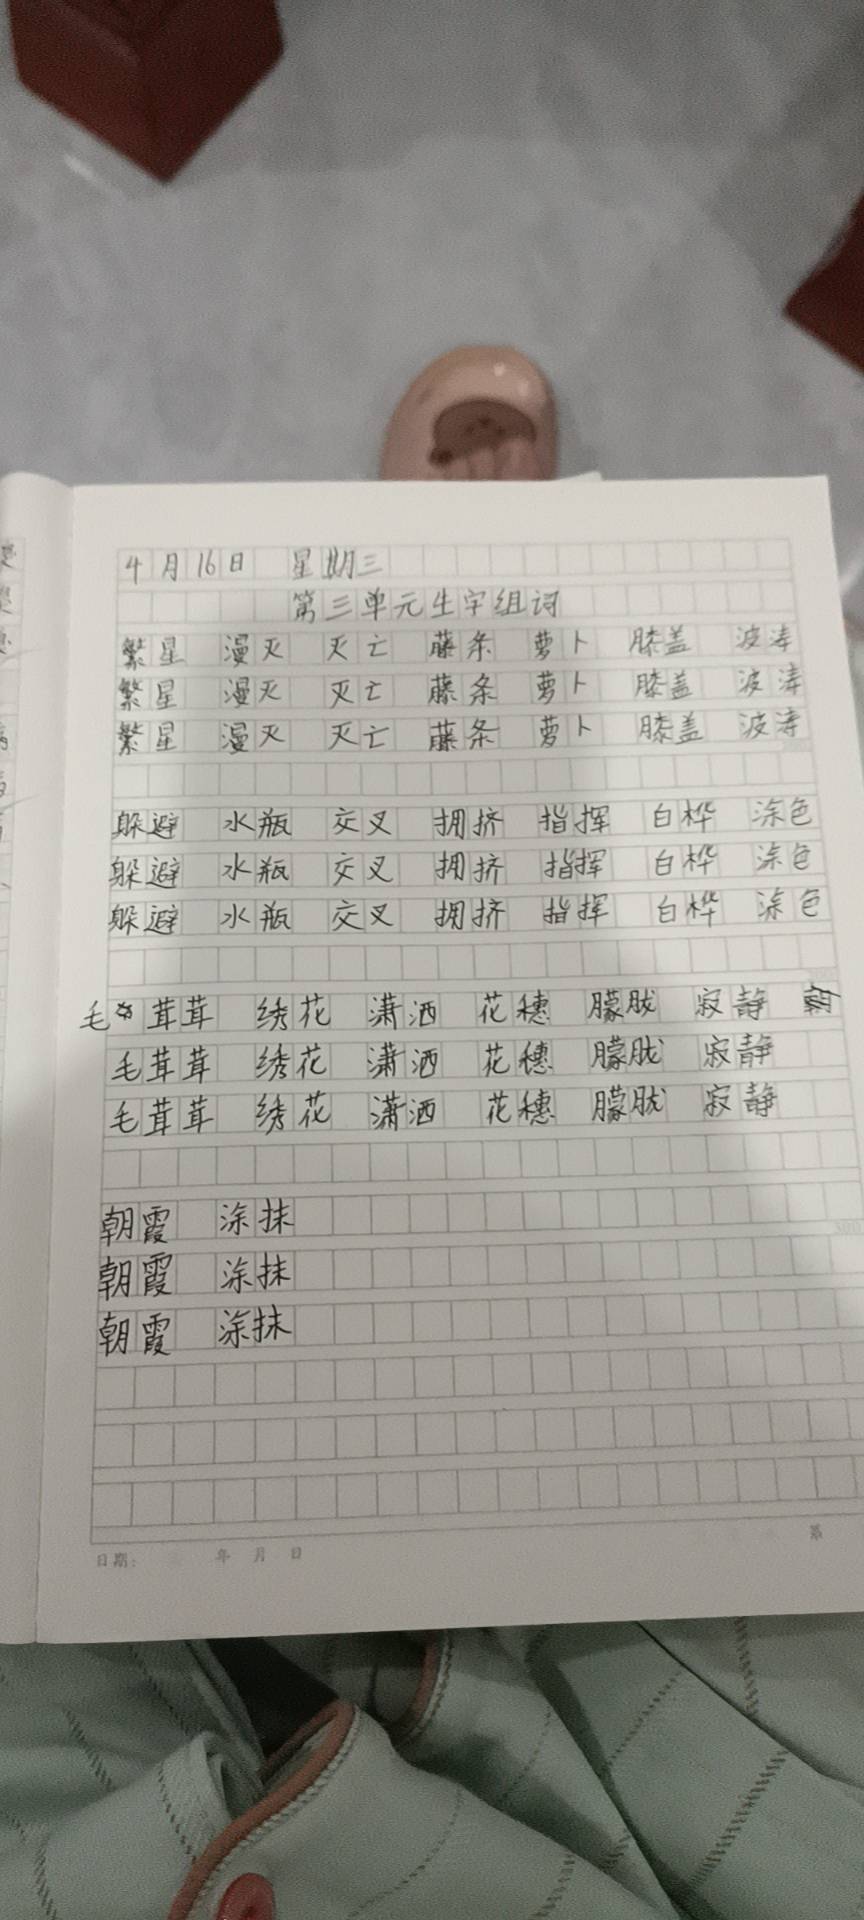 4月16日 星期三
第三单元生字组词
繁星 漫灭 灭亡 藤条 萝卜 膝盖 波涛
繁星 漫灭 灭亡 藤条 萝卜 膝盖 波涛
繁星 漫灭 灭亡 藤条 萝卜 膝盖 波涛
躲避 水瓶 交叉 拥挤 指挥 白桦 涂色
躲避 水瓶 交叉 拥挤 指挥 白桦 涂色
躲避 水瓶 交叉 拥挤 指挥 白桦 涂色
毛茸茸 绣花 潇洒 花穗 朦胧 寂静
毛茸茸 绣花 潇洒 花穗 朦胧 寂静
毛茸茸 绣花 潇洒 花穗 朦胧 寂静
朝霞 涂抹
朝霞 涂抹
朝霞 涂抹
日期: 年 月 日 第